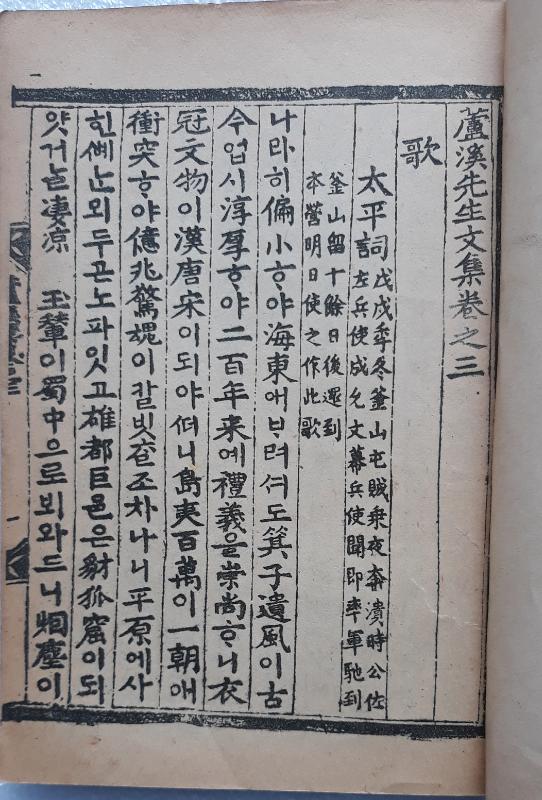 蘆溪先生文集卷之三
歌
太平詞 戊戌季冬釜山屯賊乘夜奔潰時公佐
左兵使成允文幕兵使聞即率軍馳到
釜山留十餘日後還到
本營明日使之作此歌
나라히偏小ᄒᆞ야海東애ᄇᆞ려셔도箕子遺風이古
今업시淳厚ᄒᆞ야二百年来예禮義을崇尚ᄒᆞ니衣
冠文物이漢唐宋이되야ᄯᅥ니島夷百萬이一朝애
衝突ᄒᆞ야億兆驚魂이갈빗ᄎᆞᆯ조차나니平原에사
힌ᄲᅧᄂᆞᆫ뫼두곤노파잇고雄都巨邑은豺狐窟이되
얏거ᄂᆞᆯ凄凉 玉輦이蜀中으로뵈와드니烟塵이